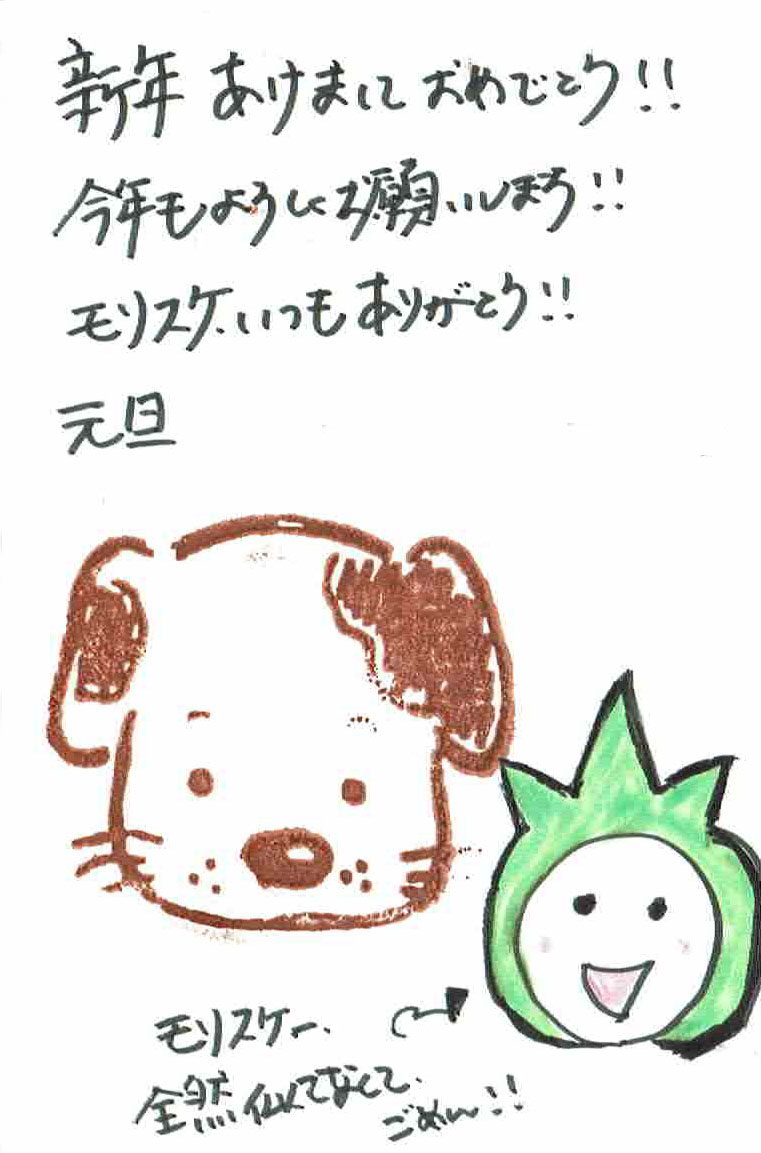 新年 あけまして おめでとう!!
今年もよろしくお願いします!!
モリスケ、いつもありがとう!!
元旦
モリスケー、
全然似てなくて、
ごめん!!